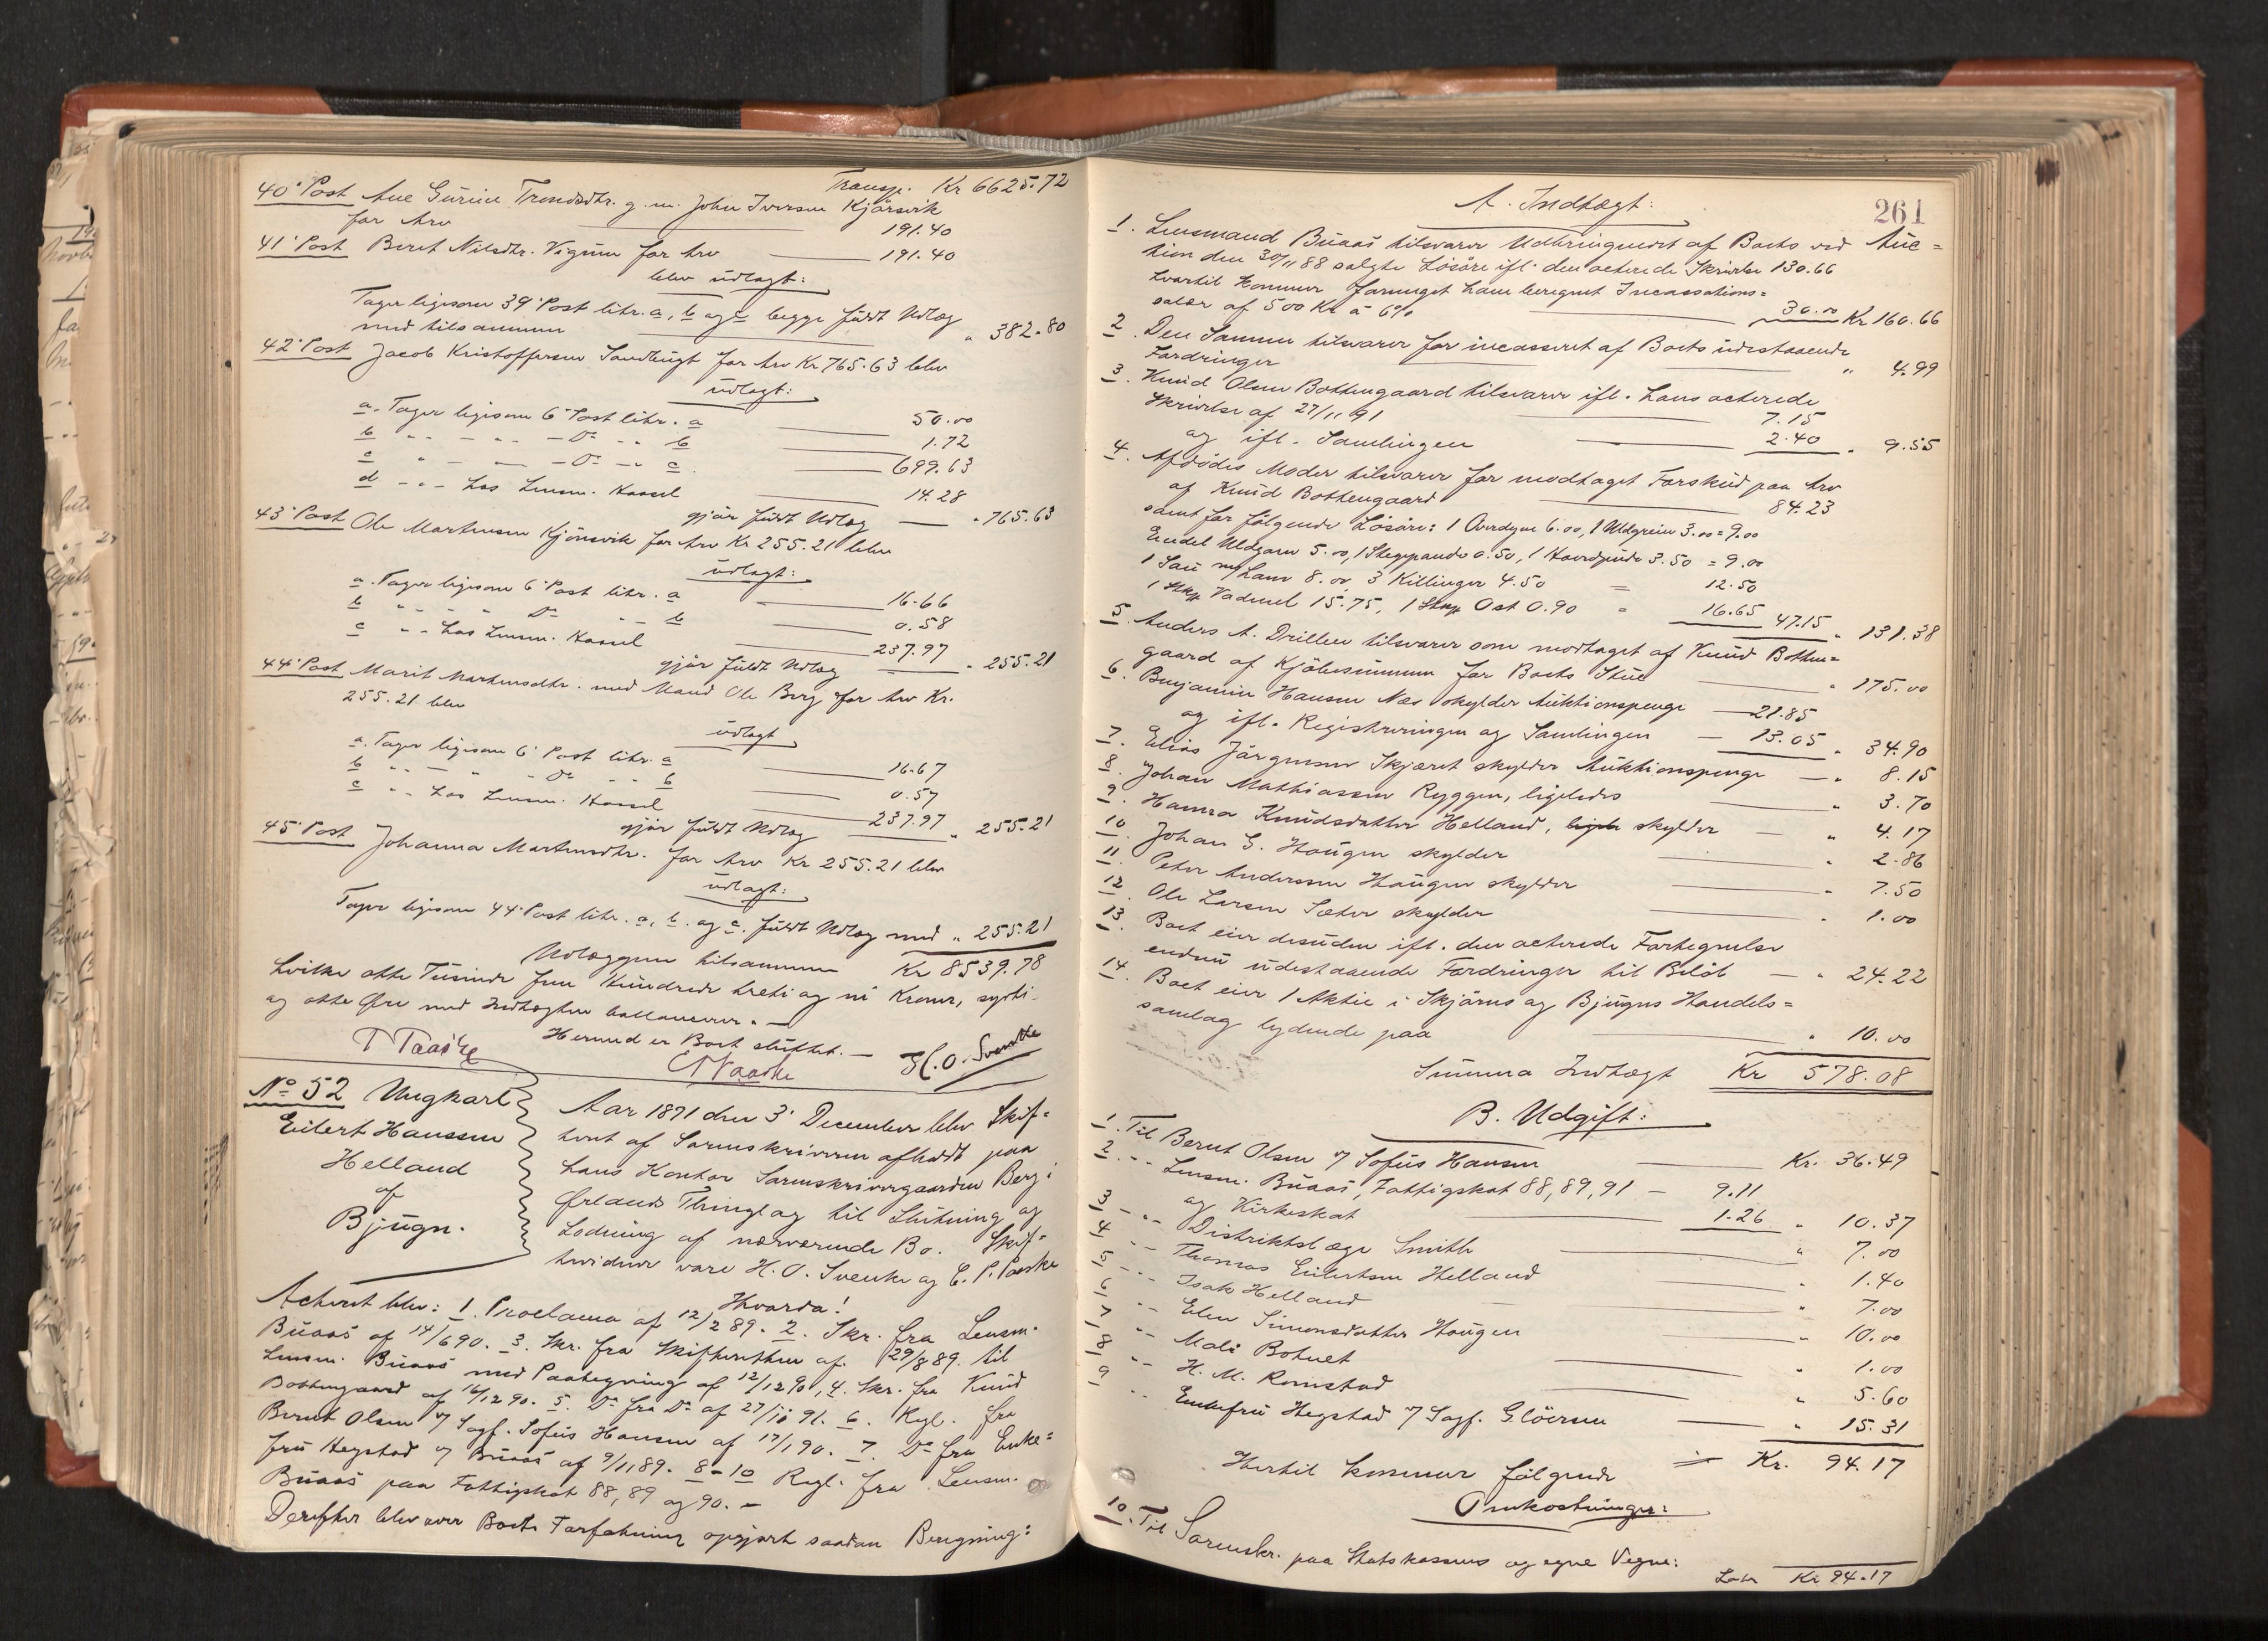 Transp. Kr 6625.72
40' Post Ane Gurine Trondsdtr. g. m. John Iversen Kjörsvik
for Arv 191.40
41' Post Beret Nilsdtr. Vigum for Arv 191.40
blev udlagt:
Tager ligesom 39' Post litr. a, b og c begge fuldt Udlæg
med tilsammen " 382.80
42' Post Jacob Kristoffersen Sandbugt for Arv Kr 765.63 blev
udlagt:
a. Tager ligesom 6' Post litr. a 50.00
b " - " - Do " b 1.72
c " - " - Do - " c. 699.63
d - " - hos Lensm. Hassel 14.28
gjør fuldt Udlæg " 765.63
43' Post Ole Martinsen Kjönsvik for Arv Kr 255.21 blev
udlagt:
a. Tager ligesom 6' Post litr. a 16.66
b " " " Do " " b 0.58
c " - hos Lensm. Hassel 237.97
gjør fuldt Udlæg " 255.21
44' Post Marit Martensdtr. med Mand Ole Berg for Arv Kr.
255.21 blev
udlagt
a. Tager ligesom 6' Post litr. a 16.67
b " - " - Do " " b 0.57
c " - hos Lensm. Hassel 237.97
gjør fuldt Udlæg " 255.21
45' Post Johanna Martensdtr. for Arv Kr 255.21 blev
udlagt:
Tager ligesom 44' Post litr. a, b. og c. fuldt Udlæg med " 255.21
Udlæggene tilsammen Kr 8539.78
hvilke otte Tusinde fem Hundrede treti og ni Kroner, sytti-
og otte Øre med Indtægten ballancerer. —
Hermed er Boet sluttet. —
T Paaske E Paaske H. O. Svenke
No 52 Ungkarl
Eilert Hansen
Helland
af
Bjugn.
Aar 1891 den 3' December blev Skif=
teret af Sorenskriveren afholdt paa
hans Kontor Sorenskrivergaarden Berg i
Ørlands Thinglag til Slutning og
Lodning af nærværende Bo. Skif=
tevidner vare H. O. Svenke og E. P. Paaske
Hvorda!
Acteret blev: 1. Proclama af 12/2 89. 2. Skr. fra Lensm.
Buaas af 14/6 90. 3. Skr. fra Skifteretten af 29/8 89. til
Lensm. Buaas med Paategning af 12/12 90, 4. Skr. fra Knud
Bottengaard af 16/12 90. 5. Do fra Do af 27/11 91. 6. Regl. fra
Bernt Olsen v/ Sagf. Sofus Hansen af 17/1 90. 7. Do fra Enke=
fru Hegstad v/ Buaas af 9/11 89. 8-10 Regl. fra Lensm.
Buaas paa Fattigskat 88, 89 og 90. —
Derefter blev over Boets Forfatning opgjort saadan Beregning:
261
A. Indtægt:
1. Lensmand Buaas tilsvarer Udbringendet af Boets ved Auc=
tion den 30/11 88 solgte Lösöre ifl. den acterede Skrivelse 130.66
hvortil kommer formeget ham beregnet Incassations=
salær af 500 Kr à 6% 30.00 Kr 160.66
2. Den Samme tilsvarer for incasseret af Boets udestaaende
Fordringer " 4.99
3. Knud Olsen Bottengaard tilsvarer ifl. hans acterede
Skrivelse af 27/11 91 7.15
og ifl. Samlingen 2.40 " 9.55
4. Afdödes Moder tilsvarer for modtaget Forskud paa Arv
af Knud Bottengaard 84.23
samt for følgende Lösöre: 1 Overdyne 6.00, 1 Uldgrein 3.00 = 9.00
Endel Uldgarn 5.00, 1 Stegepande 0.50, 1 Hovedpude 3.50 = 9.00
1 Sau m/ Lam 8.00, 3 Killinger 4.50 = 12.50
1 Stkp Vadmel 15.75, 1 Stkp Ost 0.90 = 16.65 47.15 " 131.38
5. Anders A. Drillen tilsvarer som modtaget af Knud Botten=
gaard af Kjöbesummen for Boets Stue " 175.00
6. Benjamin Hansen Næs skylder Auktionspenge 21.85
og ifl. Registreringen og Samlingen 13.05 " 34.90
7. Elias Jörgensen Skjæret skylder Auktionspenge " 8.15
8. Johan Mathiassen Ryggen, ligeledes " 3.70
9. Hanna Knudsdatter Helland, skylder " 4.17
10. Johan E. Haugen skylder " 2.86
11. Peter Andersen Haugen skylder " 7.50
12. Ole Larsen Sæter skylder " 1.00
13. Boet eier desuden ifl. den acterede Fortegnelse
endnu udestaaende Fordringer til Belöb " 24.22
14. Boet eier 1 Aktie i Skjörns og Bjugns Handels=
samlag lydende paa " 10.00
Summa Indtægt Kr 578.08
B. Udgift:
1. Til Bernt Olsen v/ Sofus Hansen Kr. 36.49
2. " - Lensm. Buaas, Fattigskat 88, 89, 91 - 9.11
og Kirkeskat 1.26 " 10.37
3 - " - Distriktslæge Smith " 7.00
4 " - Thomas Eilertsen Helland " 1.40
5 " - Isak Helland " 7.00
6 " - Elen Simonsdatter Haugen " 10.00
7 " - Mali Botnet " 1.00
8 " - H. M. Romstad " 5.60
9 " - Enkefru Hegstad v/ Sagf. Glöersen " 15.31
Kr. 94.17
Hertil kommer følgende
Omkostninger:
10. Til Sorenskr. paa Statskassens og egne Vegne:
Lat. Kr 94.17